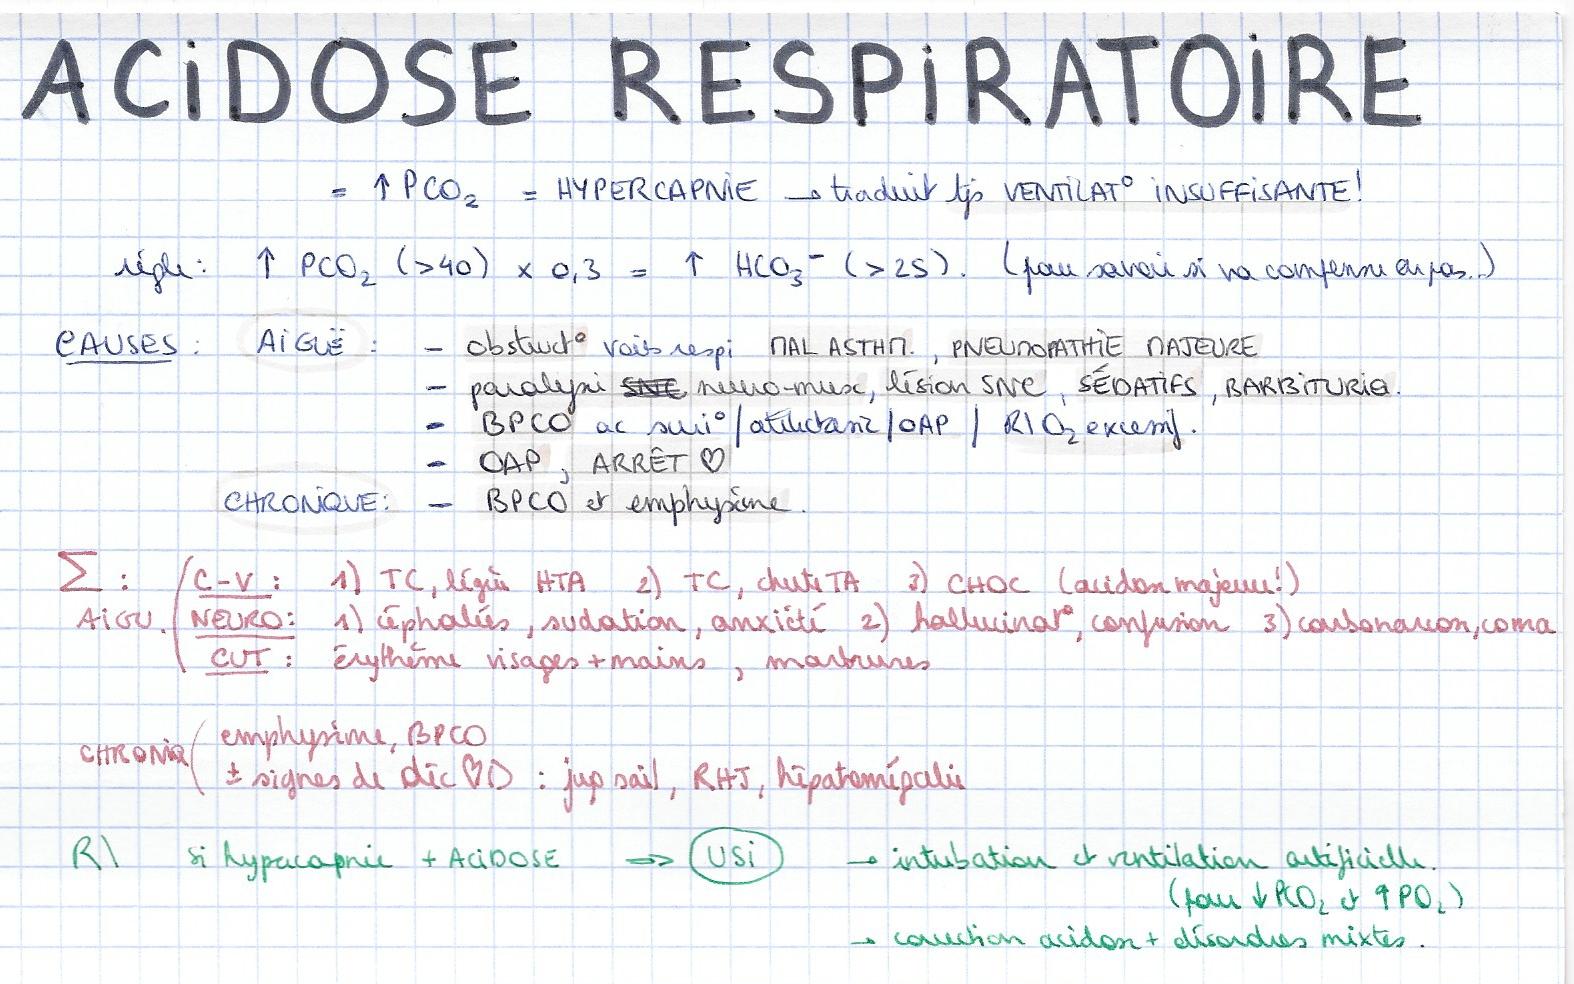 ACiDOSE RESPiRATOiRE
= ↑ PCO₂ = HYPERCAPNiE → traduit tjs VENTiLAT° iNSUFFiSANTE!
règle: ↑ PCO₂ (>40) x 0,3 = ↑ HCO₃⁻ (>25). (pour savoir si va compenser ou pas.)
CAUSES: AiGUË: - obstruct° voies respi MAL ASTHM., PNEUMOPATHiE MAJEURE
- paralysie SNC neuro-musc, lésion SNC, SÉDATiFS, BARBiTURiQ.
- BPCO ac suri°/atélectasie/OAP / R\ O₂ excessif.
- OAP, ARRÊT ♡
CHRONiQUE: - BPCO et emphysème.
Σ: C-V: 1) TC, légère HTA 2) TC, chute TA 3) CHOC (acidose majeure!)
AiGU. NEURO: 1) céphalées, sudation, anxiété 2) hallucinat°, confusion 3) carbonarcose, coma
CUT: Érythème visages + mains, marbrures
CHRONiQ emphysème, BPCO
± signes de déc ♡D: jug sail, RHJ, hépatomégalie
R\ si hypercapnie + ACiDOSE ⇒ USi → intubation et ventilation artificielle.
(pour ↓ PCO₂ et ↑ PO₂)
→ correction acidose + désordres mixtes.